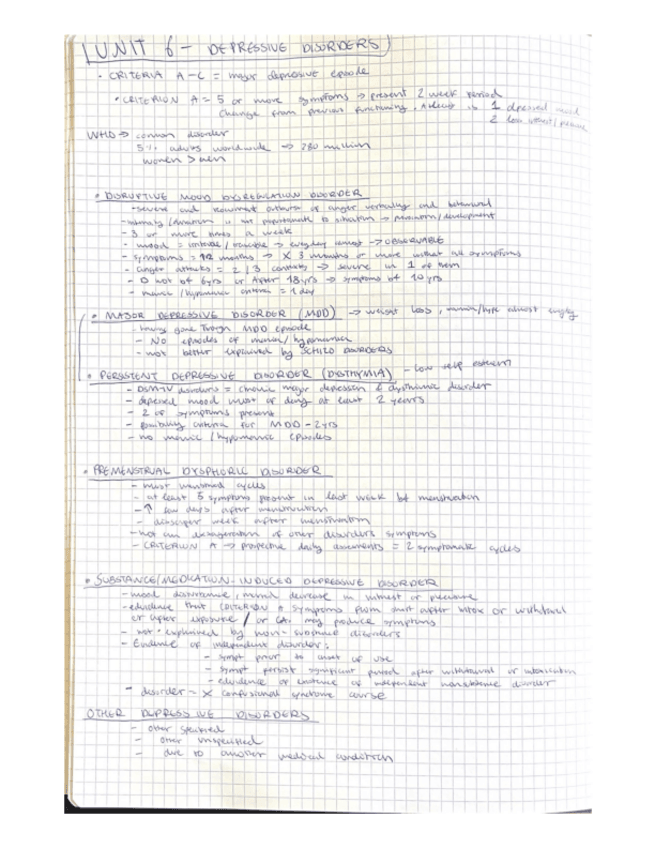 UNIT 6 - DEPRESSIVE DISORDERS
• CRITERIA A-C = major depressive episode
• CRITERION A = 5 or more symptoms → present 2 week period
Change from previous functioning. At least is 1 depressed mood
2 loss interest/pleasure
WHO → common disorder
5% adults worldwide → 280 million
women > men
• DISRUPTIVE MOOD DYSREGULATION DISORDER
- severe and recurrent outbursts of anger verbally and behavioral
- intensity/duration is not proportionate to situation → /development
- 3 or more times a week
- mood = irritable / → everyday almost → OBSERVABLE
- symptoms = 12 months → X 3 months or more without all symptoms
- anger attacks = 2/3 contexts → severe in 1 of them
- D not of 6yrs or After 18yrs → symptoms bf 10yrs
- manic/hypomanic criteria = 1 day
• MAJOR DEPRESSIVE DISORDER (MDD) → weight loss, almost
- Having gone Trough MDD episode
- NO episodes of manic/hypomania
- not better explained by SCHIZO DISORDERS
• PERSISTENT DEPRESSIVE DISORDER (DISTHYMIA) - low self esteem
- DSM-IV disorders = chronic major depression & dysthimic disorder
- depressed mood most of day at least 2 years
- 2 of symptoms present
- criteria for MDD - 2yrs
- no manic/hypomanic episodes
• PREMENSTRUAL DYSPHORIC DISORDER
- most menstrual cycles
- at least 5 symptoms present in last week bf menstruation
- ↑ few days after menstruation
- week after menstruation
- not an exageration of other disorders symptoms
- CRITERION A → prospective daily assesments = 2 symptomatic cycles
• SUBSTANCE/MEDICATION-INDUCED DEPRESSIVE DISORDER
- mood disturbance, decrease in interest or pleasure
- edvidence that CRITERION A symptoms from after intox or withdrawl
or after exposure / or CA. may produce symptoms
- not explained by non-substance disorders
- Evidence of independent disorder:
- sympt prior to onset of use
- sympt persist significant period after withdrawl or intoxication
- edvidence of existence of independent disorder
- disorder - X confusional syndrome course
OTHER DEPRESSIVE DISORDERS
- other specified
- other unspecified
- due to another medical condition